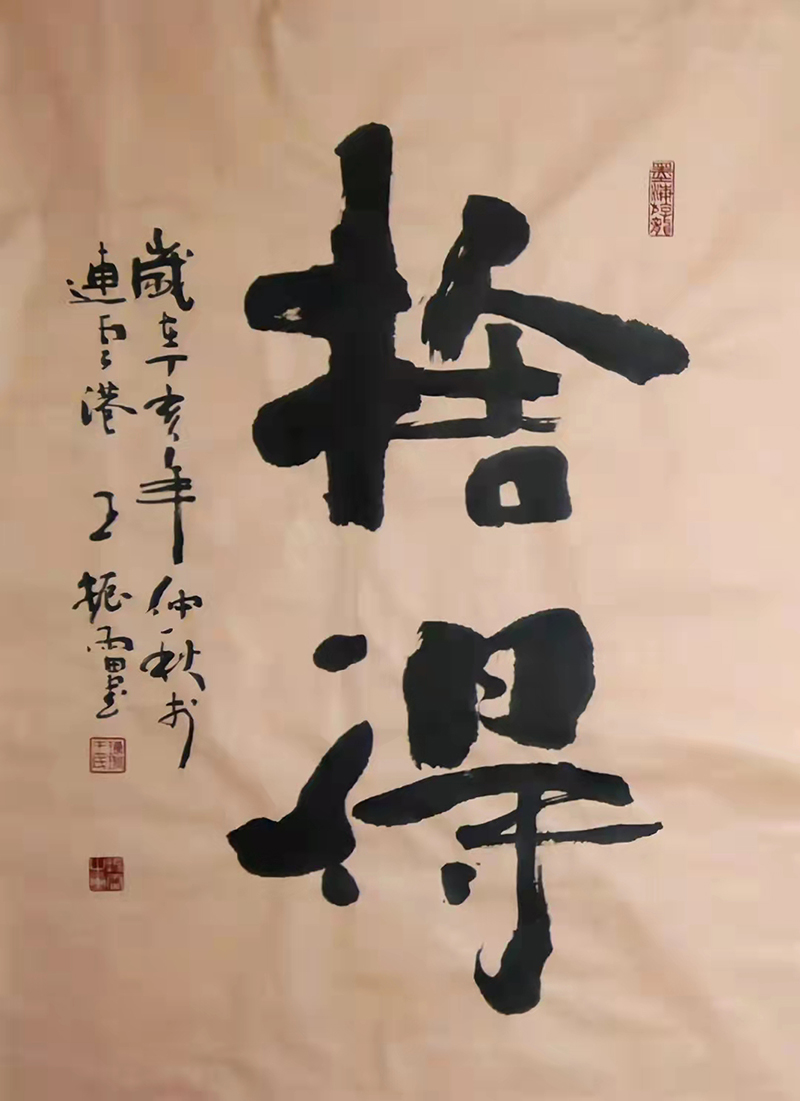 捨
得
歲辛亥年仲秋於
連雲港 王振雷書